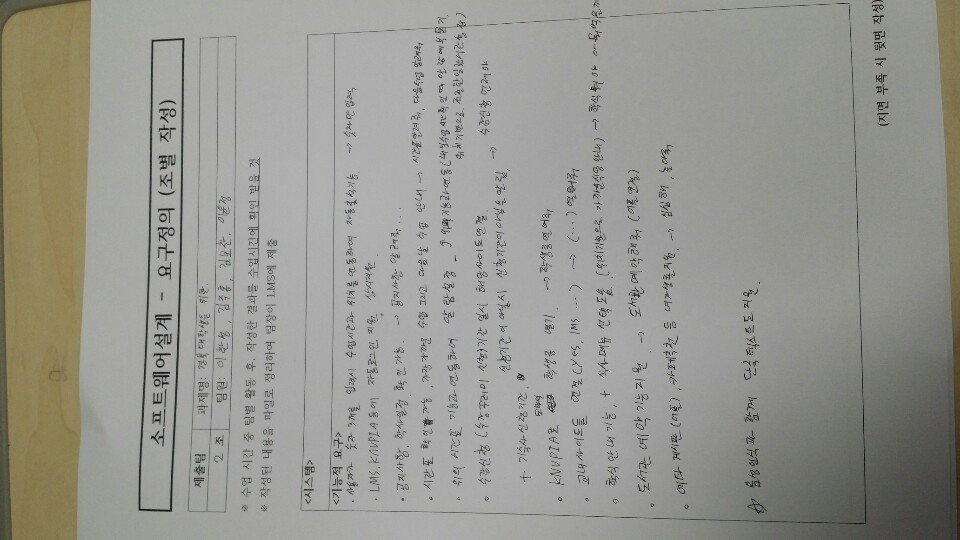 소프트웨어설계 - 요구정의 (조별 작성)
제출팀 과제명: 경북대학생을 위한
2 조 팀원: 이한성, 김주홍, 김보찬,
※ 수업 시간 중 팀별 활동 후, 작성한 결과를 수업시간에 확인 받을 것
※ 작성된 내용을 파일로 정리하여 팀장이 LMS에 제출
<시스템>
<기능적 요구>
· 사용자가 숫자 3개를 입력시 수업시간과 위치를 연동하여 자동출석기능 → 숫자만 입력
· LMS, KNUPIA 등에 자동로그인 지원,
· 공지사항, 학사일정 확인 가능 → 공지사항 알려줘...
· 시간표 확인 가능, 가장가까운 수업 그리고 다음날 수업 안내 → 시간표알려줘, 다음수업 알려줘
· 위의 시간표 기능과 연동하여 알람설정
위치기반으로
· 수강신청 (수강꾸러미 신청)기간 일시 해당사이트연결 → 수강신청 언제야
신청기간이 아닐시 신청기간이 아님을 알림,
+ 기숙사신청기간.
· KNUPIA로 모바일 학생증 열기 → 학생증열어줘
· 교내사이트들 연결(Yes, lms ...) → (...) 열어줘
· 학식안내기능, + 식사메뉴 선택도움 (위치기준으로 가까운식당안내) → 학식 뭐야
· 도서관 예약기능지원 → 도서관예약해줘 (어플연결)
· 에타 게시판(어플), 카페추천 등 여가생활지원 → 심심해, 놀아줘
☆ 음성인식과 함께 단축텍스트도 지원.
(지면 부족 시 뒷면 작성)